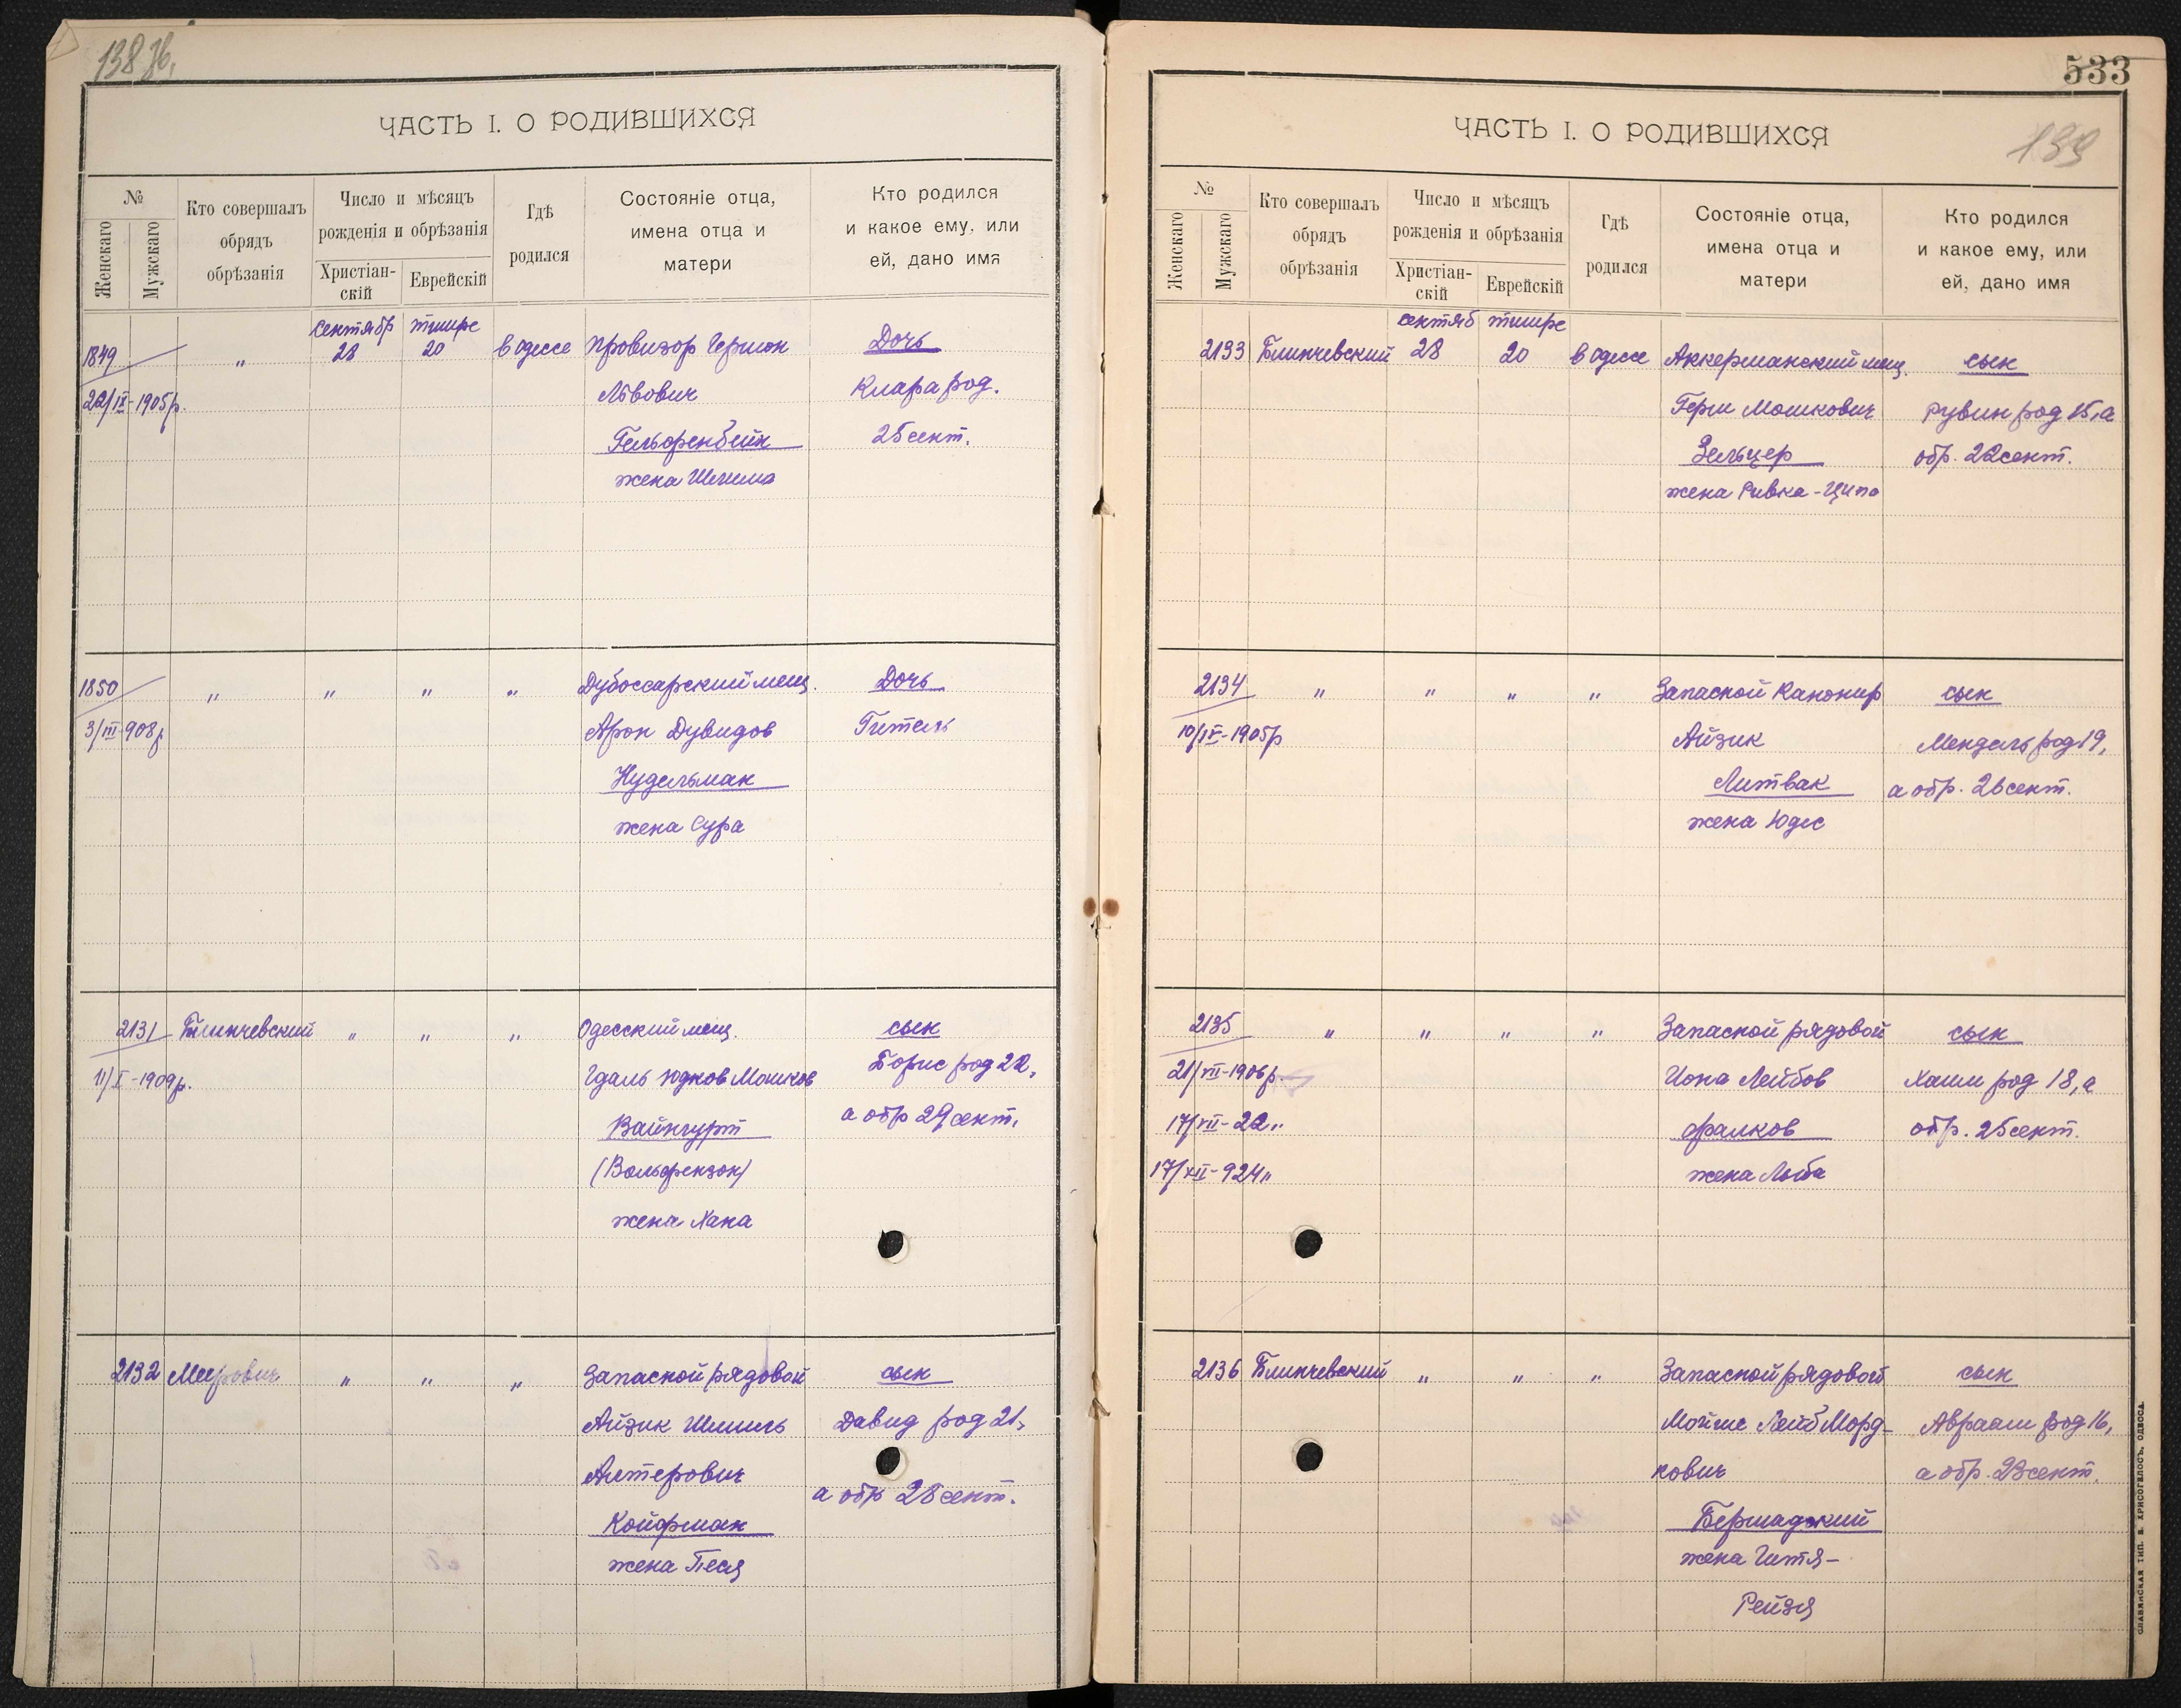 138 Jб.
ЧАСТЬ I. О РОДИВШИХСЯ
№
Женскаго
Мужскаго
Кто совершалъ
обрядъ
обрѣзанія
Число и мѣсяцъ
рожденія и обрѣзанія
Христіан-
скій
Еврейскій
Гдѣ
родился
Состояніе отца,
имена отца и
матери
Кто родился
и какое ему, или
ей, дано имя
сентябр тишре
1849 " 28 20 в Одессе Провизор Гершон Дочь
22/IX-1905р. Львович Клара род.
Гельфенбейн 25 сент.
жена Шейма
1850 " " " " Дубоссарский мещ. Дочь
3/III-908р. Арон Дувидов Гитель
Нудельман
жена Сура
2131 Блинчевский " " " Одесский мещ. сын
11/I-1909р. Гдаль Юдков Мошков Борис род 22,
Вайнгурт а обр 29 сент.
(Вольфензон)
жена Хана
2132 Меерович " " " Запасной рядовой сын
Айзик Шмиль Давид род 21,
Алтерович
а обр 28 сент.
Койфман
жена Песя
533
139
ЧАСТЬ I. О РОДИВШИХСЯ
№
Женскаго
Мужскаго
Кто совершалъ
обрядъ
обрѣзанія
Число и мѣсяцъ
рожденія и обрѣзанія
Христіан-
скій
Еврейскій
Гдѣ
родился
Состояніе отца,
имена отца и
матери
Кто родился
и какое ему, или
ей, дано имя
сентяб тишре
2133 Блинчевский 28 20 в Одессе Аккерманский мещ. сын
Герш Мошкович Рувин род 15, а
Зельцер обр. 22 сент.
жена Ривка-Ципа
2134 " " " " Запасной Канонир сын
10/IX-1905р Айзик Мендель род 19,
Литвак а обр. 26 сент.
жена Юдес
2135 " " " " Запасной рядовой сын
21/VII-1906р. Иона Лейбов Хаим род 18, а
17/VII-22 " Фалков обр. 25 сент.
17/XII-924 " жена Люба
2136 Блинчевский " " " Запасной рядовой сын
Мойше Лейб Морд- Авраам род 16,
кович а обр. 23 сент.
Бершадский
жена Гитля-
Рейзя
СЛАВЯНСКАЯ ТИП. Н. ХРИСОГЕЛОСЪ, ОДЕССА.